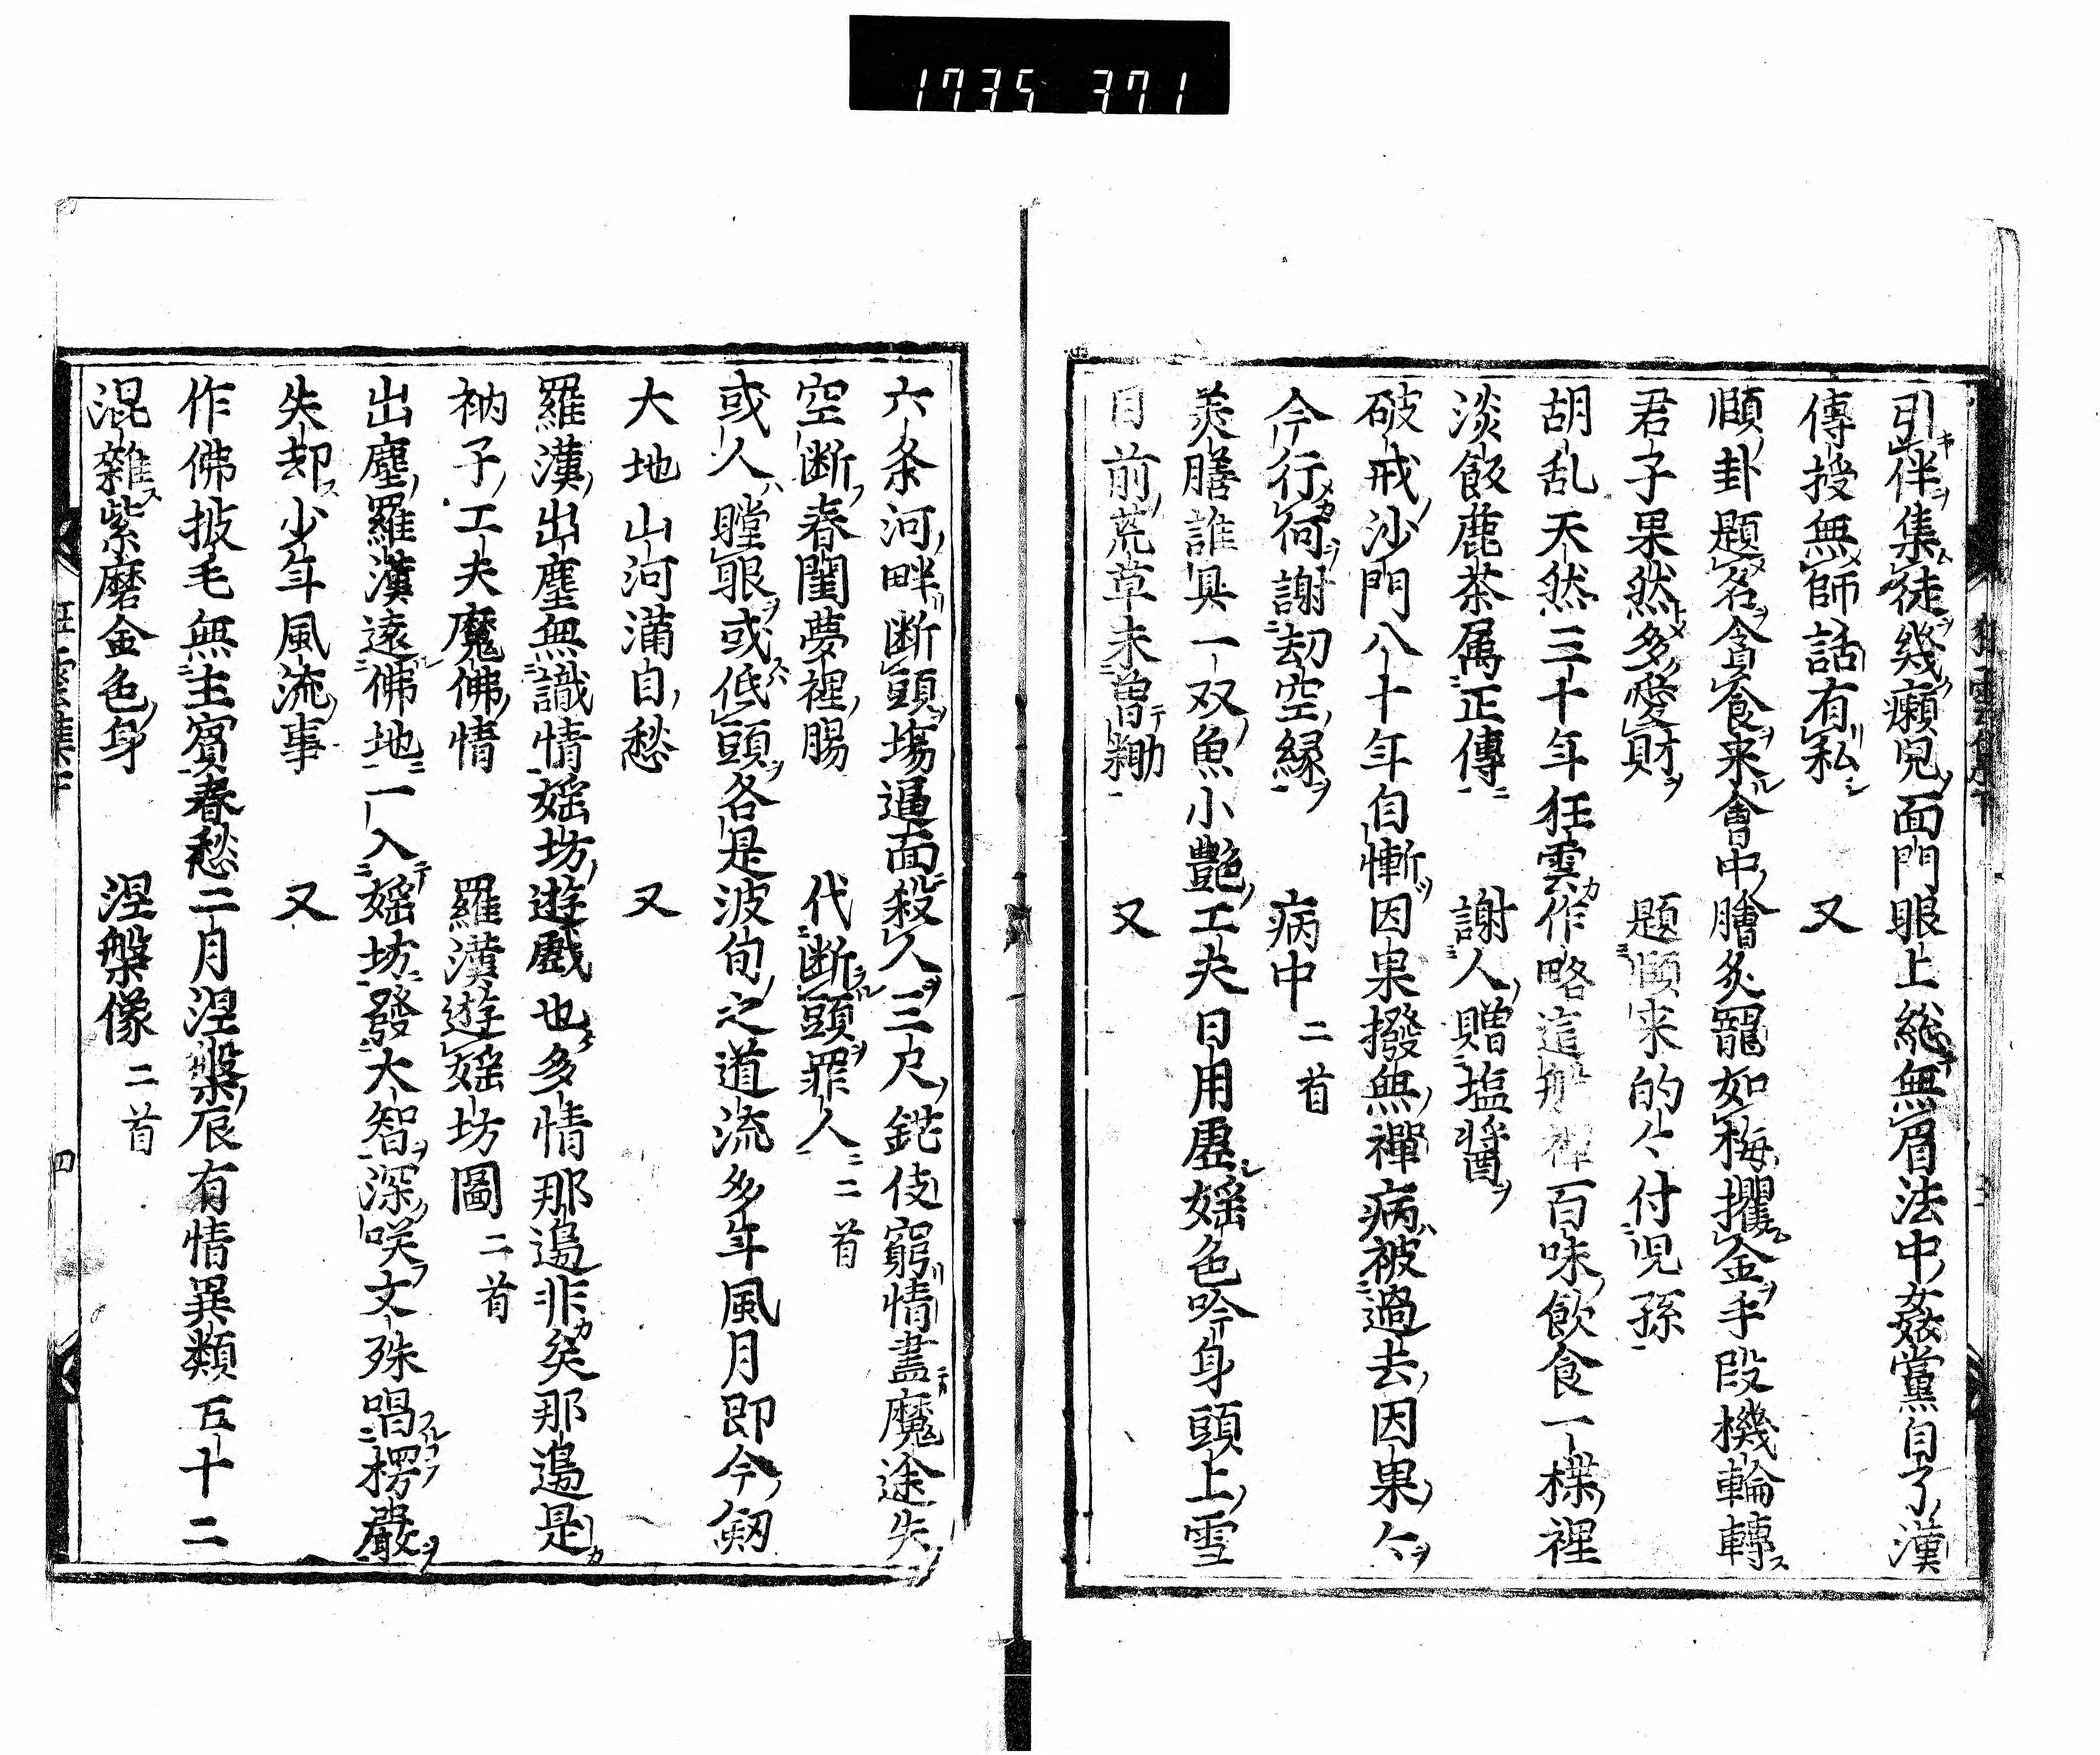 1735 371
引伴集徒幾癩兒面門眼上総無眉法中姦黨自了漢
傳授無師話有私　又
頤卦題名貪養来會中膾炙寵如梅攫金手段機輪轉
君子果然多愛財　題頤来的々付児孫
胡乱天然三十年狂雲作略這般禪百味飲食一楪裡
淡飯麁茶属正傳　謝人贈塩醤
破戒沙門八十年自慚因果撥無禪病被過去因果々
今行何謝劫空縁　病中二首
美膳誰具一双魚小艶工夫日用虚婬色吟身頭上雪
目前荒草未曽耡　又
六条河畔断頭塲逼面殺人三尺鋩伎窮情盡魔途失
空断春閨夢裡腸　代断頭罪人二首
或人瞠眼或低頭各是波旬之道流多年風月即今劔
大地山河滿目愁　又
羅漢出塵無識情婬坊遊戯也多情那邉非矣那邉是
衲子工夫魔佛情　羅漢遊婬坊圖二首
出塵羅漢遠佛地一入婬坊發大智深咲文殊唱楞嚴
失却少年風流事　又
作佛披毛無主賓春愁二月涅槃辰有情異類五十二
混雜紫磨金色身　涅槃像二首
狂雲集下
四